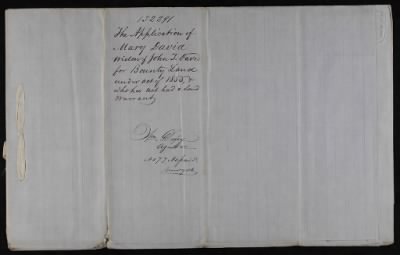 132291
The Application of
Mary David
widow of John T. Davi
for Bounty Land
under act of 1855, &
who has not had a Land
Warrant,
Wm
Agent
No 77 Nassau St
New York